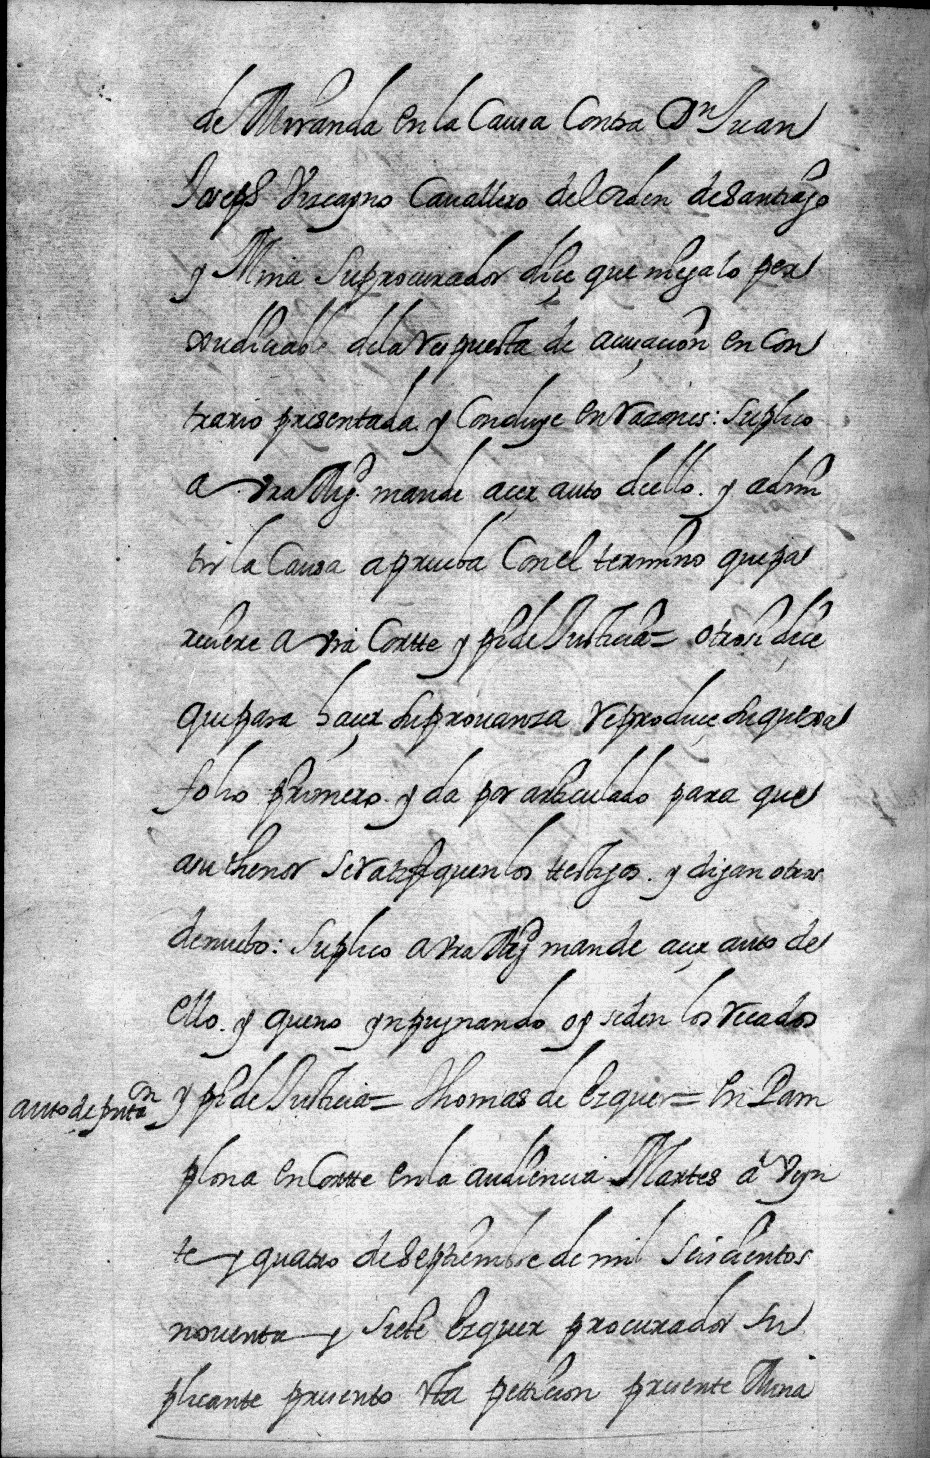 de Miranda en la Causa Contra Dn Juan
Joseph Vizcayno Cauallero del orden de Santiago
y Mina su procurador dice que niega lo per
xudiciable de la respuesta de acusacion en con
trario presentada y Concluye en razones: suplico
a vra Mgd. mande acer auto de ello. y admi
tir la Causa a prueba Con el termino que pa
reciere a vra Cortte y pide Justicia = otrosi dice
que para hacer su prouanza reproduce su quexa
folio primero. y da por articulado para que
a su thenor se ratifiquen los testigos. y digan otros
de nuebo: suplico a vra Mgd mande acer auto de
ello. y que no ynpugnando oy se den los recados
y pide Justicia = Thomas de Ezquer = En Pam
auto de pnton
plona en Cortte en la audiencia Martes a veyn
te y quatro de Septiembre de mil seiscientos
nouenta y siete Ezquer procurador su
plicante presento esta petticion presente Mina